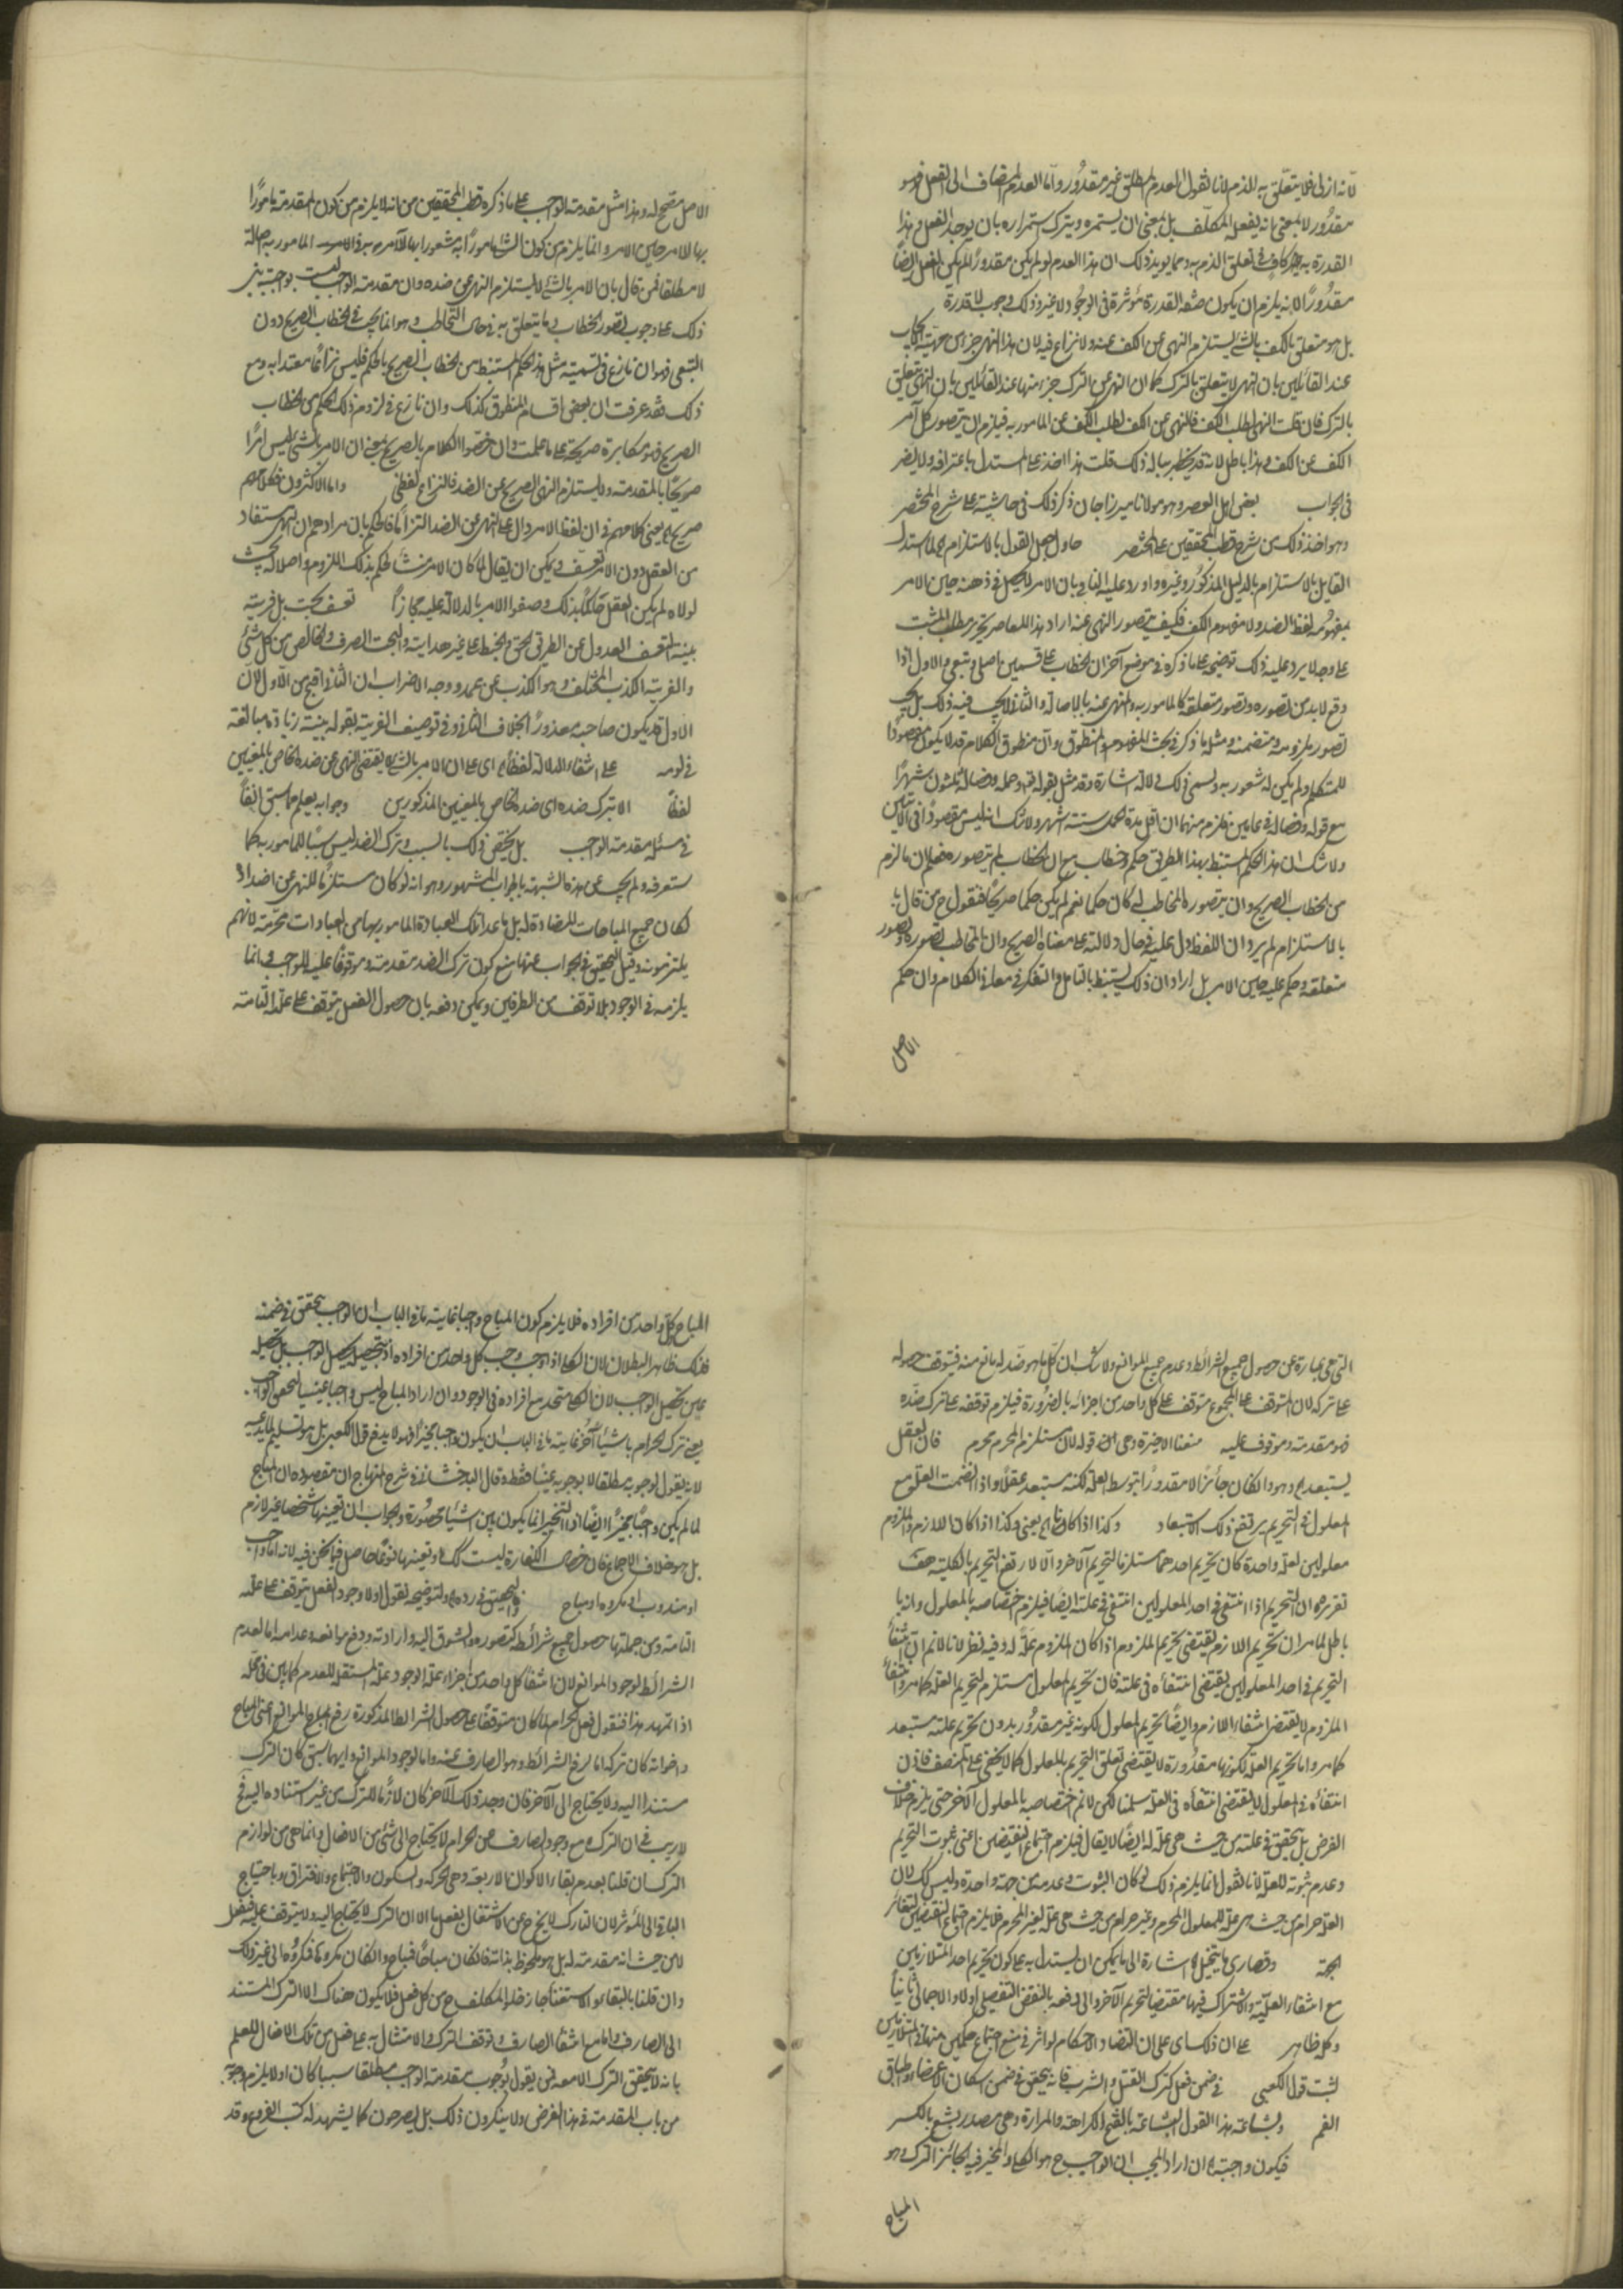 لانه ازلى فلا يتعلق به الذم لانا نقول العدم المطلق غير مقدور واما العدم المضاف الى الفعل فهو
مقدور لا بمعنى انه يفعله المكلف بل بمعنى ان يستمره ويترك استمراره بان يوجد الفعل وهذا
القدرة به كاف فى تعلق الذم به ومما يويد ذلك ان هذا العدم لو لم يكن مقدورا لم يكن الفعل ايضا
مقدورا لانه يلزم ان يكون صفة القدرة مؤثرة فى الوجود ولا غير وذلك وجوب لا قدرة
بل هو متعلق بالكف بالشئ يستلزم النهى عن الكف عنه ولا نزاع فيه لان هذا النهى جزء من مهية الايجاب
عند القائلين بان النهى لا يتعلق بالترك كما ان النهى عن الترك جزء منها عند القائلين بان النهى يتعلق
بالترك فان قلت النهى لطلب الكف فالنهى عن الكف لطلب الكف عن المامور به فيلزم ان يتصور كل آمر
الكف عن الكف وهذا باطل لانه قد يخطر بباله ذلك قلت هذا اخذ على المستدل باعترافه ولا يضر
فى الجواب بعض اهل العصر وهو مولانا ميرزاجان ذكر ذلك فى حاشيته على شرح المختصر
وهو اخذ ذلك من شرح قطب المحققين على المختصر حاول جعل القول بالاستلزام لما استدل
القايل بالاستلزام بالدليل المذكور وغيره واورد عليه النافى بان الامر لا يحصل فى ذهنه حين الامر
مفهومه لفظ الضد ولا مفهوم الكف فكيف يتصور النهى عنه اراد هذا المعاصر تحرير مطلب المثبت
على وجه لا يرد عليه ذلك توضيحه على ما ذكره فى موضع آخر ان الخطاب على قسمين اصلى وتبعى والاول اذا
وقع لابد من تصوره وتصور متعلقه كالمامور به والمنهى عنه بالاصالة والثانى لا يجب فيه ذلك بل يجب
تصور ملزومه ومتضمنه ومثل ما ذكر فى بحث المفهوم والمنطوق وان منطوق الكلام قد لا يكون مقصودا
للمتكلم ولم يكن له شعور به ويسمى ذلك دلالة اشارة وقد مثل بقوله تعالى وحمله وفصاله ثلثون شهرا
مع قوله وفصاله فى عامين فلزم منهما ان اقل مدة الحمل ستة اشهر ولا شك انه ليس مقصودا فى الآيتين
ولا شك ان هذا الحكم المستنبط بهذا الطريق حكم وخطاب مع ان الخطاب لم يتصوره فعلم ان ما لزم
من الخطاب الصريح وان يتصوره المخاطب له كان حكما نعم لم يكن حكما صريحا فنقول ح من قال
بالاستلزام لم يرد ان اللفظ دل عليه فى حال دلالته على معناه الصريح وان المخاطب تصوره وتصور
متعلقه وحكم عليه حين الامر بل اراد ان ذلك يستنبط بالتامل والتفكر فى معانى الكلام وان حكم
الاصل
الاصل مصحح له وهذا مثل مقدمة الواجب على ما ذكره قطب المحققين من انه لا يلزم من كون المقدمة مامورا
بها الامر حين الامر وانما يلزم من كون الشئ مامورا به شعورا بها لآمره به والامر المامور به اصالة
لا مطلقا فمن قال بان الامر بالشئ لا يستلزم النهى عن ضده وان مقدمة الواجب ليست بواجبة بنى
ذلك على وجوب تصور الخطاب وما يتعلق به فى حال التخاطب وهو انما يجب فى الخطاب الصريح دون
التبعى فهو ان نازع فى تسمية مثل هذا الحكم المستنبط من الخطاب الصريح بالحكم فليس نزاعا معتدا به ومع
ذلك فقد عرفت ان بعض اقسام المنطوق كذلك وان نازع فى لزوم ذلك الحكم من الخطاب
الصريح فهو مكابرة صريحة على ما علمت وان خصوا الكلام بالصريح بمعنى ان الامر بالشئ ليس امرا
صريحا بالمقدمة ولا يستلزم النهى الصريح عن الضد فالنزاع لفظى واما الاكثرون فكلامهم
صريح يعنى كلامهم فى ان لفظ الامر دال على النهى عن الضد التزاما فالحكم بان مرادهم ان النهى مستفاد
من العقل دون الامر تعسف ويمكن ان يقال لما كان الامر منشأ لحكم بذلك اللزوم واصلا له بحيث
لولاه لم يكن العقل حاكما بذلك وصفوا الامر بالدلالة عليه مجازا تعسف بحت بل فرية
بينة التعسف العدول عن الطريق الحق والخبط على غير هداية والبحت الصرف والخالص من كل شئ
والفرية الكذب المختلف وهو الكذب عن عمد ووجه الاضراب ان الثانى اقبح من الاول لان
الاول قد يكون صاحبه معذورا بخلاف الثانى وفى توصيف الفرية بقوله بينة زيادة مبالغة
فى لومه على انتفاء الدلالة لفظا اى على ان الامر بالشئ لا يقتضى النهى عن ضده الخاص بالمعنيين
لفظا الا بترك ضده اى ضده الخاص بالمعنيين المذكورين وجوابه يعلم مما سبق آنفا
فى مسئلة مقدمة الواجب بل يختص ذلك بالسبب وترك الضد ليس سببا للمامور به كما
ستعرفه ولم يجب عن هذه الشبهة بالجواب المشهور وهو انه لو كان مستلزما للنهى عن اضداده
لكان جميع المباحات المضادة له بل ما عدا تلك العبادة المامور بها من العبادات محرمة لانهم
يلتزمونه وقيل التحقيق فى الجواب عنها منع كون ترك الضد مقدمة وموقوفا عليه للواجب وانما
يلزمه فى الوجود بلا توقف من الطرفين ويمكن دفعه بان حصول الفعل يتوقف على علته التامة
التى هى عبارة عن حصول جميع الشرائط وعدم جميع الموانع ولا شك ان كل ما هو ضد له مانع منه فيتوقف حصوله
على تركه لان المتوقف على المجموع متوقف على كل واحد من اجزائه بالضرورة فيلزم توقفه على ترك ضده
فهو مقدمة وموقوف عليه منعنا الاخيرة وهى ان قوله لان مستلزم المحرم محرم فان العقل
يستبعده وهو وان كان جائزا لا مقدورا بتوسط العلة لكنه مستبعد عقلا واذا انضمت العلة مع
المعلول فى التحريم يرتفع ذلك الاستبعاد وكذا اذا كانا الخ يعنى وكذا اذا كان اللازم والملزوم
معلولين لعلة واحدة كان تحريم احدهما مستلزما لتحريم الآخر والا لارتفع التحريم بالكلية هف
تقريره ان التحريم اذا انتفى فى احد المعلولين انتفى فى علته ايضا فيلزم اختصاصه بالمعلول وانه با
باطل لما مر ان تحريم اللازم يقتضى تحريم الملزوم اذا كان الملزوم علة له وفيه نظر لانا لانم ان انتفاء
التحريم فى احد المعلولين يقتضى انتفائه فى علته فان تحريم المعلول مستلزم لتحريم العلة كما مر وانتفاء
الملزوم لا يقتضى انتفاء اللازم وايضا تحريم المعلول لكونه غير مقدور بدون تحريم علته مستبعد
كما مر واما تحريم العلة لكونها مقدورة لا يقتضى تعلق التحريم بالمعلول كما لا يخفى على المنصف فاذن
انتفائه فى المعلول لا يقتضى انتفائه فى العلة سلمنا لكن لانم اختصاصه بالمعلول الآخر حتى يلزم خلاف
الفرض بل تحققه فى علته من حيث هى علة له ايضا لا يقال فيلزم اجتماع النقيضين اعنى ثبوت التحريم
وعدم ثبوته للعلة لانا نقول انما يلزم ذلك لو كان الثبوت وعدمه من جهة واحدة وليس كك لان
العلة حرام من حيث هى علة للمعلول المحرم وغير حرام من حيث هى علة لغير المحرم فلا يلزم اجتماع النقيضين لتغاير
الجهة وقصارى ما يتخيل اشارة الى ما يمكن ان يستدل به على كون تحريم احد المتلازمين
مع انتفاء العلية والاشتراك فيها مقتضيا لتحريم الآخر والى دفعه بالنقض التفصيلى اولا والاجمالى ثانيا
وكل ظاهر على ان ذلك اى على ان التضاد الاحكام لو اثر فى منع اجتماع حكمين منها فى المتلازمين
لثبت قول الكعبى فى ضمن فعل كترك القتل والشرب فانه يتحقق فى ضمن اسكان الاعضاء واطباق
الفم وبشاعة هذا القول البشاعة بالفتح الكراهة والمرارة وهى مصدر بشع بالكسر
فيكون واجبة ان اراد المجيب ان الواجب ح هو الكلى والمخير فيه الجائز الترك هو
المباح
المباح كل واحد من افراده فلا يلزم كون المباح واجبا غاية ما فى الباب ان الواجب يتحقق فى ضمنه
فذلك ظاهر البطلان لان الكلى اذا وجب وجب كل واحد من افراده اذ بتحصيله يحصل الواجب بل تحصيله
عين تحصيل الواجب لان الكلى متحد مع افراده فى الوجود وان اراد المباح ليس واجبا عينيا لتحقق الواجب
يعنى ترك الحرام باشياء آخر غاية ما فى الباب ان يكون واجبا مخيرا فهو لا يدفع قول الكعبى بل هو تسليم لما يدعيه
لانه يقول لوجوبه مطلقا لا بوجوبه عينا فقط وقال البدخشانى فى شرح المنهاج ان مقصوده ان المباح
لما لم يكن واجبا مخيرا ايضا اذ التخيير انما يكون بين اشياء محصورة والجواب ان تعينها شخصا غير لازم
بل هو خلاف الاجماع فان خصال الكفارة ليست كك وتعينها نوعا حاصل فيما نحن فيه لانه اما واجب
او مندوب او مكروه او مباح والتحقيق فى رده ولتوضيحه نقول اولا وجود الفعل يتوقف على علته
التامة ومن جملتها حصول جميع شرائطه كتصوره والشوق اليه وارادته ودفع موانعه وعدامه اما لعدم
الشرائط او لوجود الموانع لان انتفاء كل واحد من اجزاء علة الوجود علة مستقلة للعدم كما بين فى محله
اذا تمهد هذا فنقول فعل الحرام لما كان متوقفا على حصول الشرائط المذكورة ورفع الموانع اعنى المباح
واخواته كان تركه اما لرفع الشرائط وهو الصارف عنه واما لوجود الموانع وايهما سبق كان الترك
مستندا اليه ولا يحتاج الى الآخر فان وجد ذلك الآخر كان لازما للترك من غير استناده اليه فح
لا ريب فى ان الترك مع وجود الصارف عن الحرام لا يحتاج الى شئ من الافعال وانما هى من لوازم
الترك ان قلنا بعدم بقاء الاكوان الاربعة وهى الحركة والسكون والاجتماع والافتراق وباحتياج
الباقى الى المؤثر لان التارك لا يخرج عن الاشتغال بفعل ما الا ان الترك لا يحتاج اليه ولا يتوقف عليه فيفعل
لا من حيث انه مقدمة له بل هو ملحوظ بذاته فان كان مباحا فمباح وان كان مكروها فمكروه الى غير ذلك
وان قلنا بالبقاء والاستغناء جاز خلو المكلف ح من كل فعل فلا يكون هناك الا الترك المستند
الى الصارف واما مع انتفاء الصارف وتوقف الترك والامتثال به على فعل من تلك الافعال للعلم
بانه لا يتحقق الترك الا معه فمن يقول بوجوب مقدمة الواجب مطلقا سببا كان او لا يلزم وجوبه
من باب المقدمة فى هذا الفرض ولا ينكرون ذلك بل يصرحون كما يشهد له كتب الفروع وقد